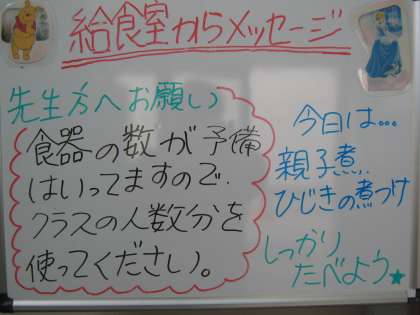 給食室からメッセージ
先生方へお願い
食器の数が予備
はいってますので.
クラスの人数分を
使ってください。
今日は...
親子煮..
ひじきの煮つけ
しっかり
たべよう★